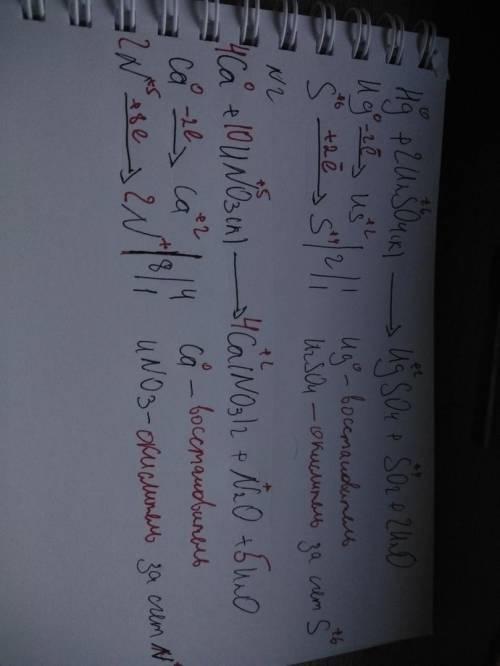 Hg⁰ + 2H₂S⁺⁶O₄(к) → Hg⁺²SO₄ + S⁺⁴O₂ + 2H₂O
Hg⁰ -2ē → Hg⁺² Hg⁰ - восстановитель
S⁺⁶ +2ē → S⁺⁴ |2| 1 H₂SO₄ - окислитель за счет S⁺⁶
N2
4Ca⁰ + 10HN⁺⁵O₃(к) → 4Ca⁺²(NO₃)₂ + N₂⁺O + 5H₂O
Ca⁰ -2ē → Ca⁺² |8| 4 Ca⁰ - восстановитель
2N⁺⁵ +8ē → 2N⁺ | | 1 HNO₃ - окислитель за счет N⁺